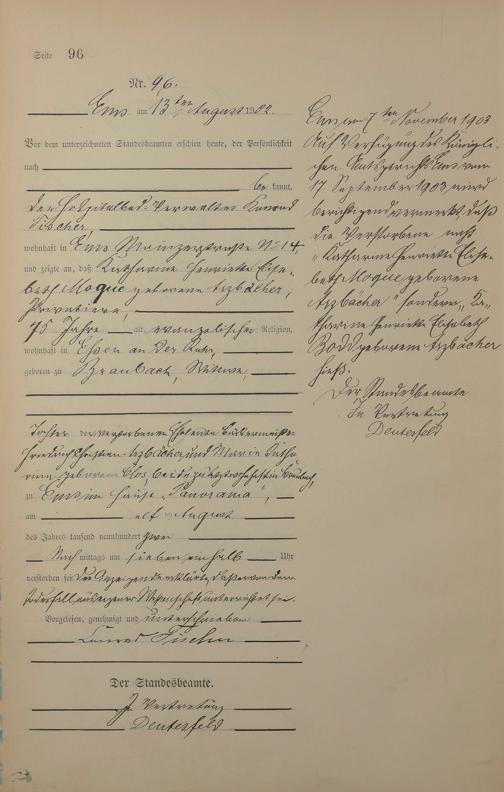 Seite 96
Nr. 96.
Ems am 13ten August 1902.
Vor dem unterzeichneten Standesbeamten erschien heute, der Persönlichkeit
nach
be kannt,
der Hospitalbad-Verwalter Konrad
Fischer,
wohnhaft in Ems Mainzerstraße No 14,
und zeigte an, daß Katharine Henriette Elisa-
beth Moque geborene Arzbächer,
Privatiere,
75 Jahre alt, evangelischer Religion,
wohnhaft in Essen an der Ruhr,
geboren zu Braubach, Witwe,
Tochter der verstorbenen Eheleute Bäckermeister
Friedrich Christian Arzbächer und Maria Katha-
rina geborene Clos, beide zuletzt wohnhaft in Braubach,
zu Ems im Hause "Panorama",
am elf ten August
des Jahres tausend neunhundert zwei
Nach mittags um sieben einhalb Uhr
verstorben sei. Der Anzeigende erklärte, daß er von dem
Todesfall aus eigener Wissenschaft unterrichtet sei.
Vorgelesen, genehmigt und unterschrieben
Conrad Fischer
Der Standesbeamte.
In Vertretung
Deutesfeld
Ems am 7ten November 1903
Auf Verfügung des Königli-
chen Amtsgerichts Ems vom
17 September 1903 wird
berichtigend vermerkt, daß
die Verstorbene nicht
"Katharine Henriette Elisa-
beth Moque geborene
Arzbächer" sondern "Ka-
tharine Henriette Elisabeth
geborene Arzbächer
hieß.
Der Standesbeamte
In Vertretung
Deutesfeld